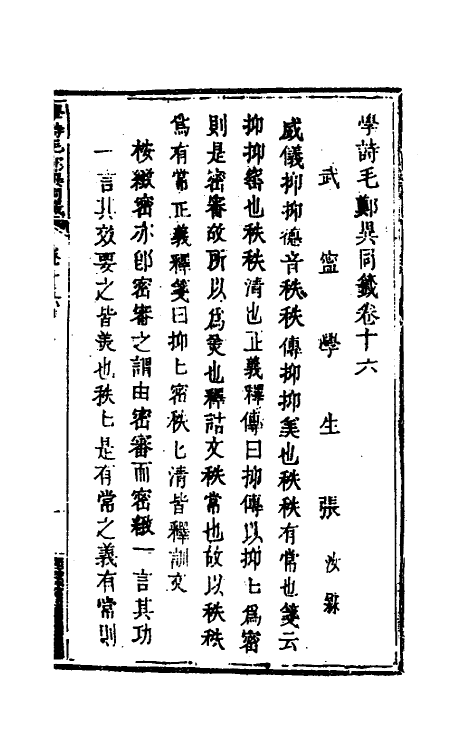 學詩毛鄭異同籤卷十六
武寍學生張汝霖
威儀抑抑德音秩秩傳抑抑美也秩秩有常也箋云
抑抑密也秩秩清也正義釋傳曰抑傳以抑匕為密
則是密審故所以為美也釋詁文秩常也故以秩秩
為有常正義釋箋曰抑匕密秩匕清皆釋訓文
桉緻密亦卽密審之謂由密審而密緻一言其功
一言其效要之皆美也秩匕是有常之義有常則